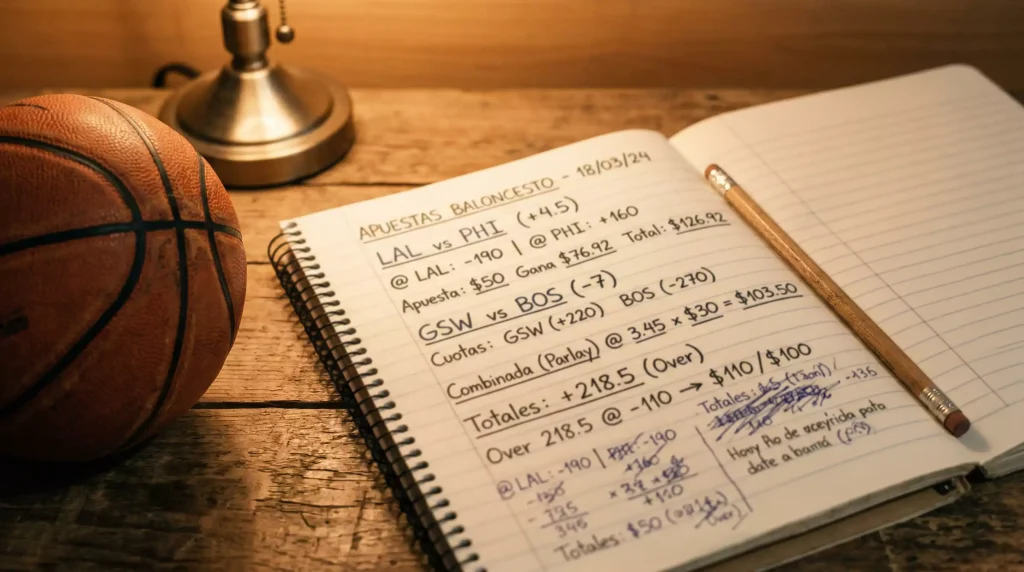 APUESTAS BALONCESTO - 18/03/24
LAL vs PHI (+4.5)
@ LAL: -190 | @ PHI: +160
Apuesta: $50 Gana $76.92 Total: $126.92
GSW vs BOS (-7)
Cuotas: GSW (+220) BOS (-270)
Combinada (Parlay) @ 3.45 x $30 = $103.50
Totales: +218.5 (Over)
Over 218.5 @ -110 → $110/$100
@ LAL: -190 | -190
+160
345
+110
Totales: $50
Totales:
-136
date a